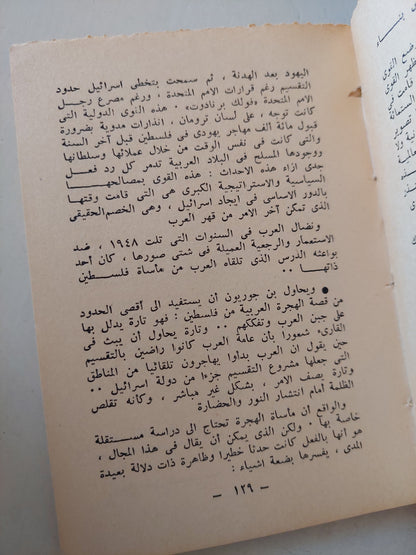 اليهود بعد الهدنة ، ثم سمحت بتخطى اسرائيل حدود
التقسيم رغم قرارات الامم المتحدة ، ورغم مصرع رجل
الامم المتحدة «فولك برنادوت» ٠ هذه القوى الدولية التى
كانت توجه ، على لسان ترومان ، انذارات مدوية بضرورة
قبول مائة ألف مهاجر يهودى فى فلسطين قبل آخر السنة
والتى كانت فى نفس الوقت من خلال عملائها وسلطانها
ووجودها المسلح فى البلاد العربية تدمر كل رد فعل
جدى ازاء هذه الاحداث : هذه القوى بمصالحها
السياسية والاستراتيجية الكبرى هى التى قامت وقتها
بالدور الاساسى فى ايجاد اسرائيل ، وهى الخصم الحقيقى
الذى تمكن آخر الامر من قهر العرب
ونضال العرب فى السنوات التى تلت ١٩٤٨ ، ضد
الاستعمار والرجعية العميلة فى شتى صورها ، كان أحد
بواعثه الدرس الذى تلقاه العرب من مأساة فلسطين
ذاتها ٠٠
● ويحاول بن جوريون أن يستفيد الى أقصى الحدود
من قصة الهجرة العربية من فلسطين : فهو تارة يدلل بها
على جبن العرب وتفككهم ٠٠ وتارة يحاول أن يبث فى
القارىء شعورا بأن عامة العرب كانوا راضين بالتقسيم
حين يقول ان العرب بداوا يهاجرون تلقائيا من المناطق
التى جعلها مشروع التقسيم جزءا من دولة اسرائيل ٠٠
وتارة يصف الامر ، بشكل غير مباشر ، وكأنه تقلص
الظلمة أمام انتشار النور والحضارة
والواقع أن مأساة الهجرة تحتاج الى دراسة مستقلة
خاصة بها ٠ ولكن الذى يمكن أن يقال فى هذا المجال ،
هو أنها بالفعل كانت حدثا خطيرا وظاهرة ذات دلالة بعيدة
المدى ، يفسرها بضعة اشياء :
— ١٢٩ —